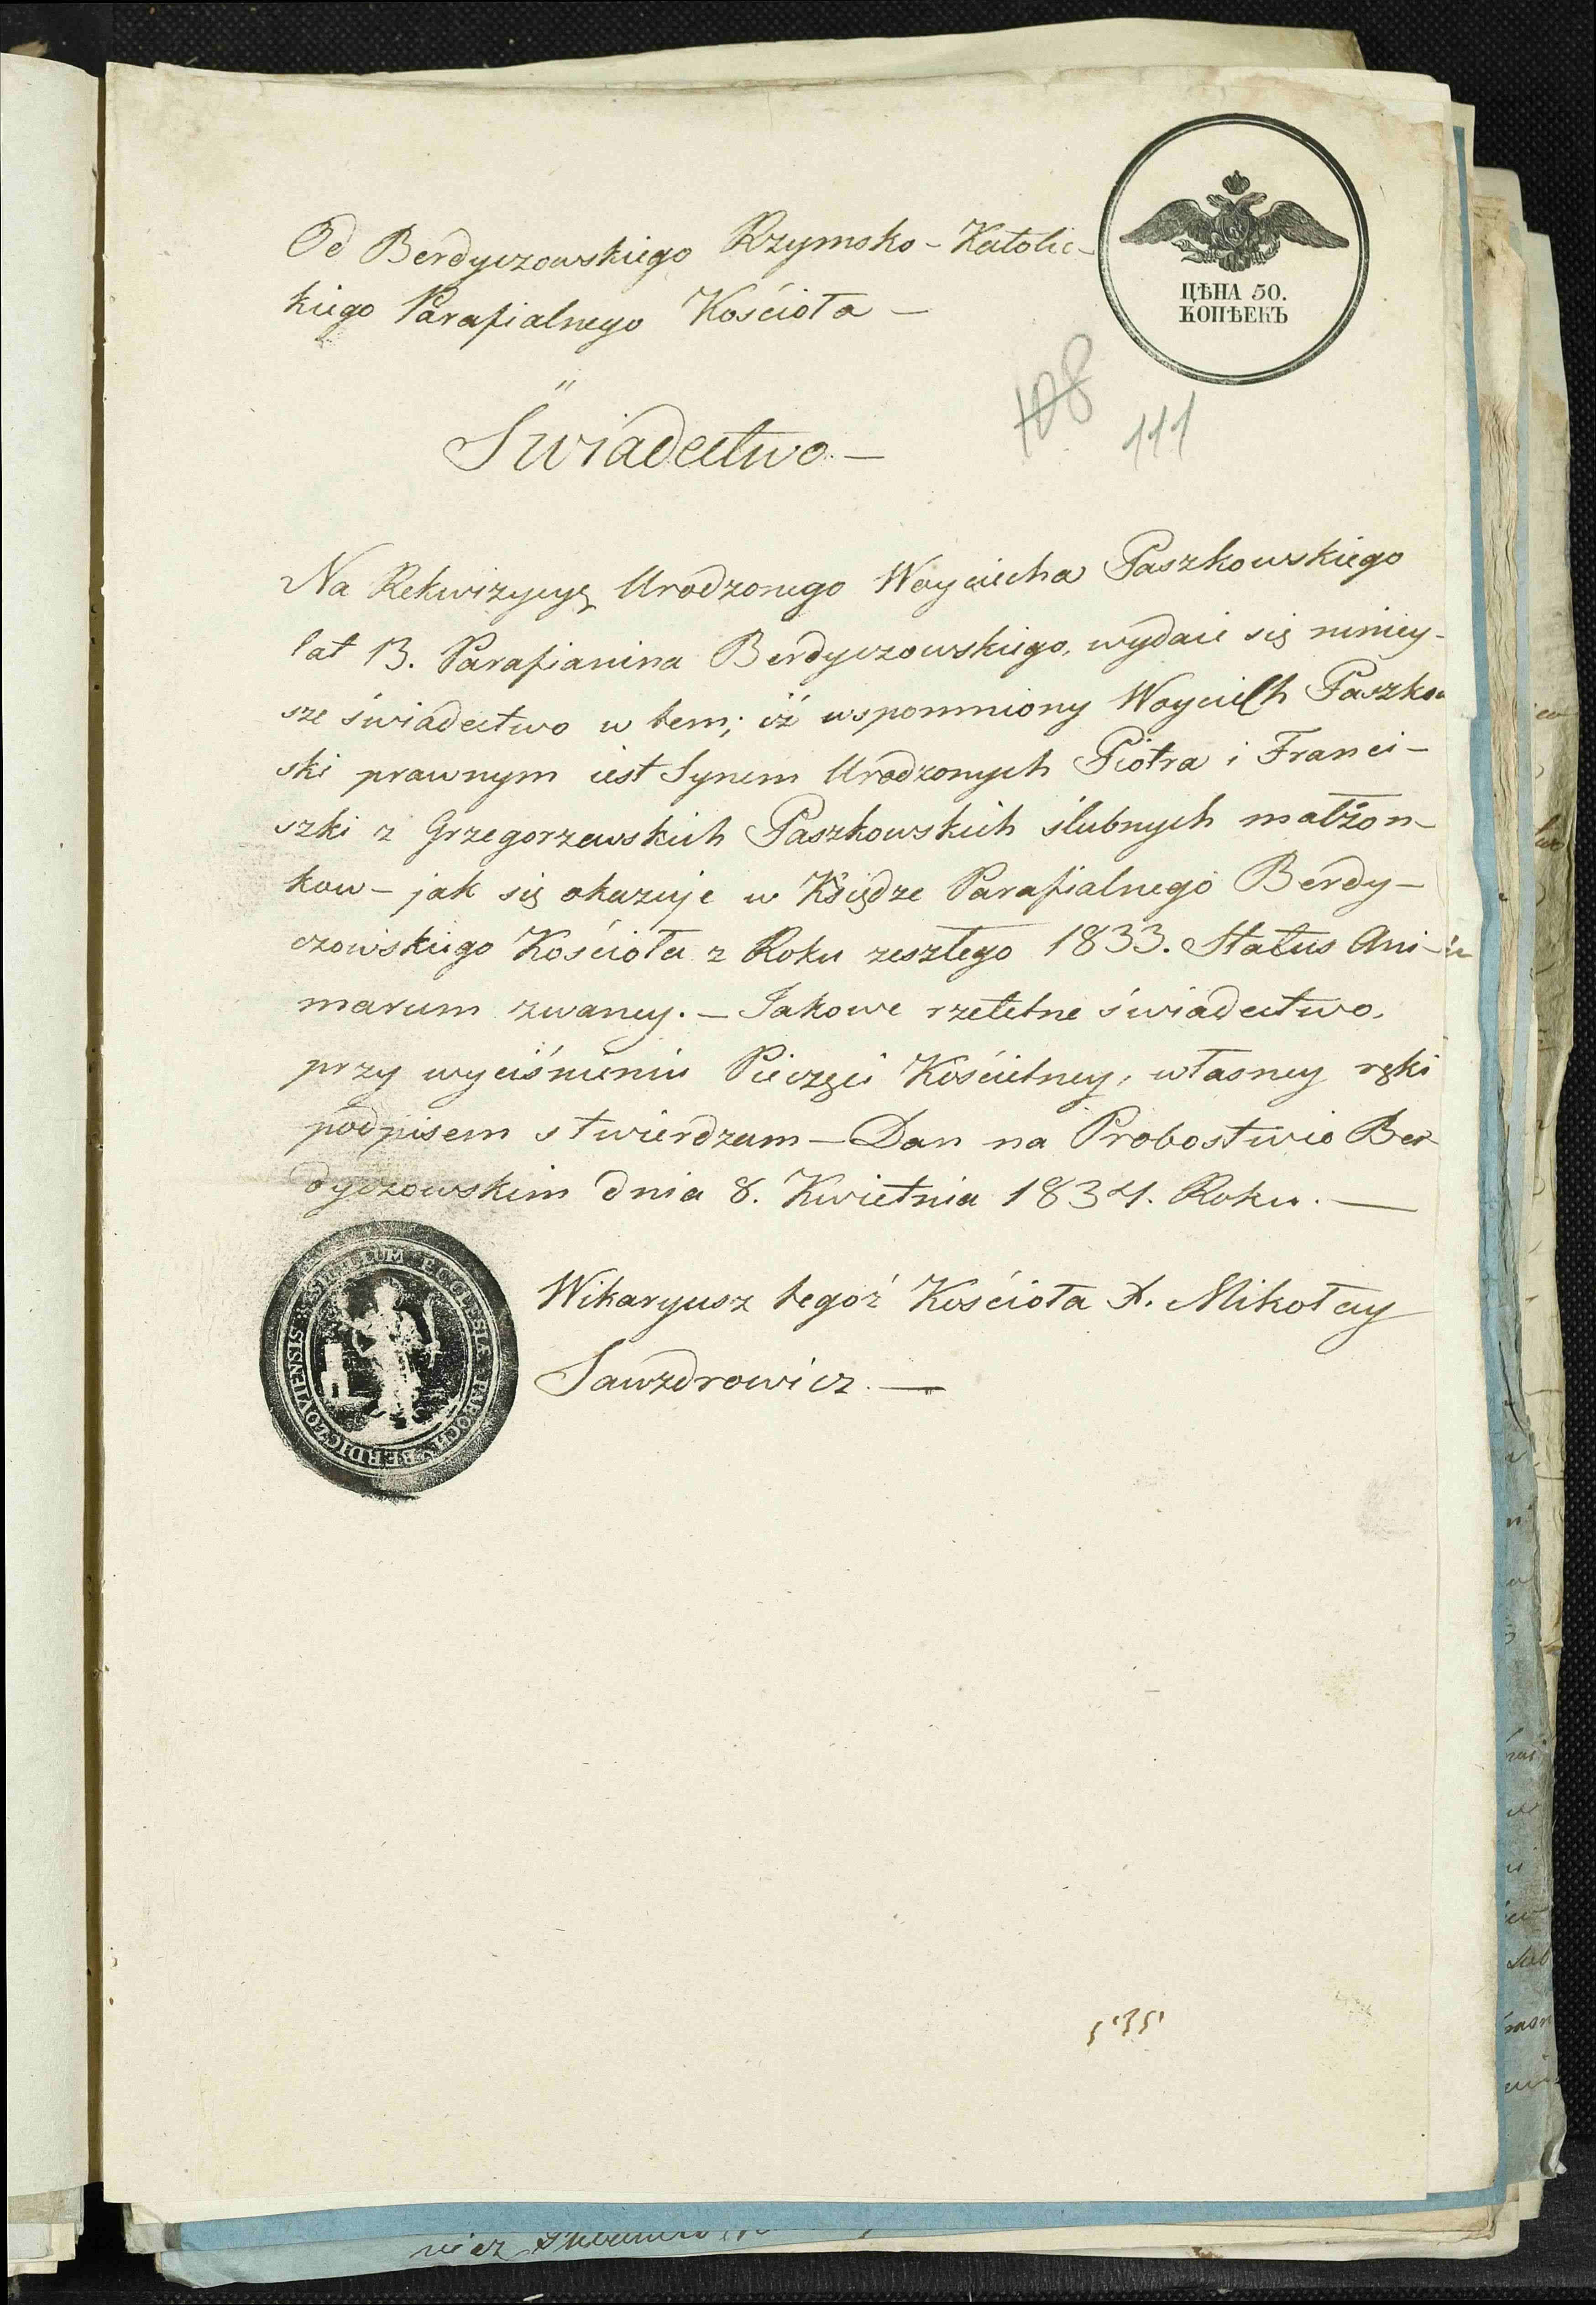 Od Berdyczowskiego Rzymsko-Katolic-
kiego Parafialnego Kościoła —
ЦѢНА 50.
КОПѢЕКЪ
108
111
Świadectwo. —
Na Rekwizycyą Urodzonego Woyciecha Paszkowskiego
lat 13. Parafianina Berdyczowskiego, wydaie się niniey-
sze świadectwo w tem; iż wspomniony Woyciech Paszkow
ski prawnym iest Synem Urodzonych Piotra i Franci-
szki z Grzegorzewskich Paszkowskich ślubnych małżon-
kow — jak się okazuje w Księdze Parafialnego Berdy-
czowskiego Kościoła z Roku zeszłego 1833. Status Ani-
marum zwaney. — Jakowe rzetelne świadectwo,
przy wyciśnieniu Pieczęci Kościelney, własney ręki
podpisem stwierdzam — Dan na Probostwie Ber
dyczowskim dnia 8. Kwietnia 1834. Roku. —
SIGILLUM ECCLESIÆ PAROCH: BERDICZOVIENSIS
Wikaryusz tegoż Kościoła X. Mikołay
Sawzdrowicz. —